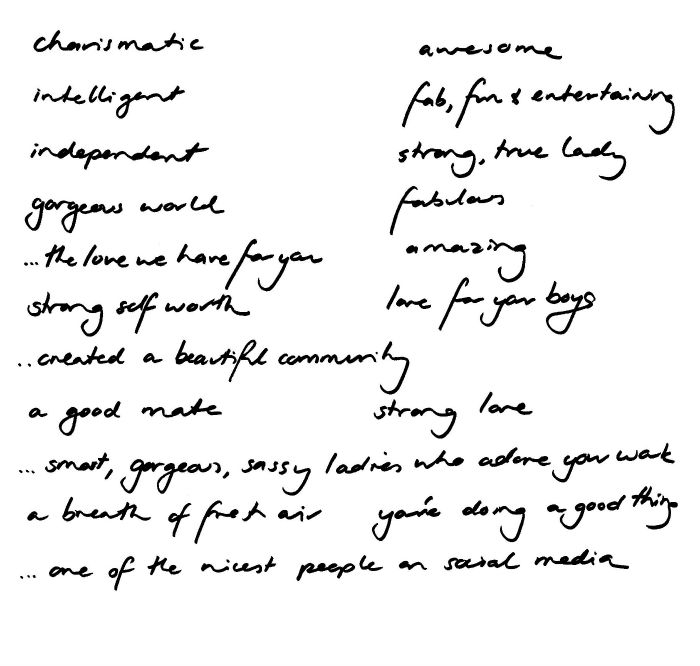 charismatic awesome
intelligent fab, fun & entertaining
independent strong, true lady
gorgeous world fabulous
... the love we have for you amazing
strong self worth love for your boys
.. created a beautiful community
a good mate strong love
... smart, gorgeous, sassy ladies who adore your work
a breath of fresh air you're doing a good thing
... one of the nicest people on social media